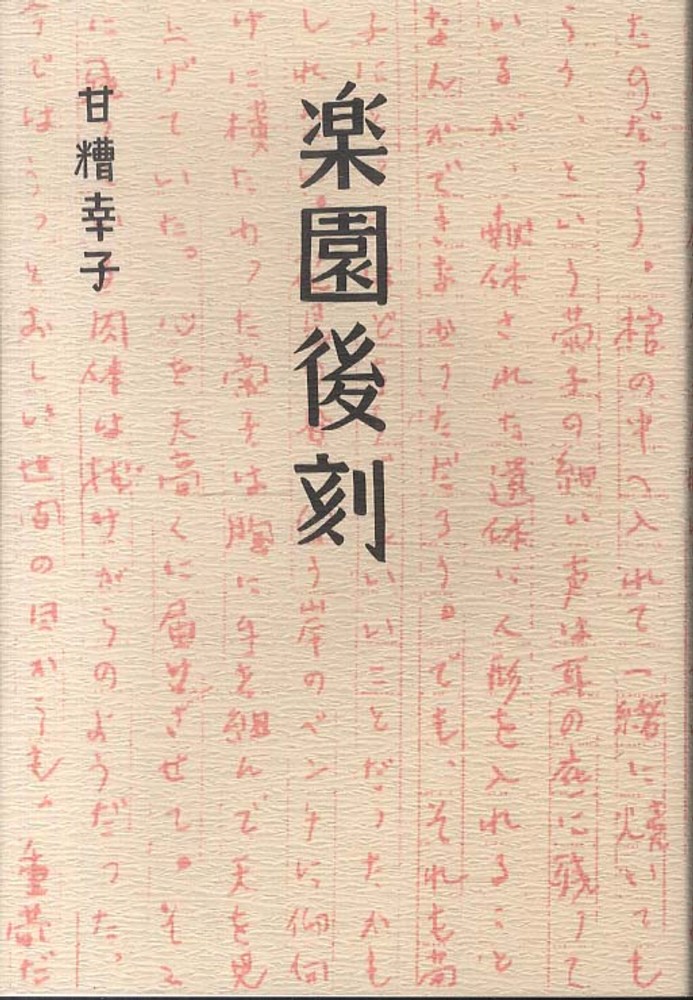 楽園後刻
甘糟幸子
たのだろう。棺の中へ入れて一緒に焼いても
らう、という子の細い声は耳の底に残って
いるが、献体された遺体に人形を入れること
なんかできなかっただろう。でも、それも
子に
しれ う岸のベンチに仰向
けに横たわった子は胸に手を組んで天を見
上げていた。心を天高くに させて。そこ
に 肉体は抜けがらのようだった。
今ではうっとおしい世間の目からも、重荷だ